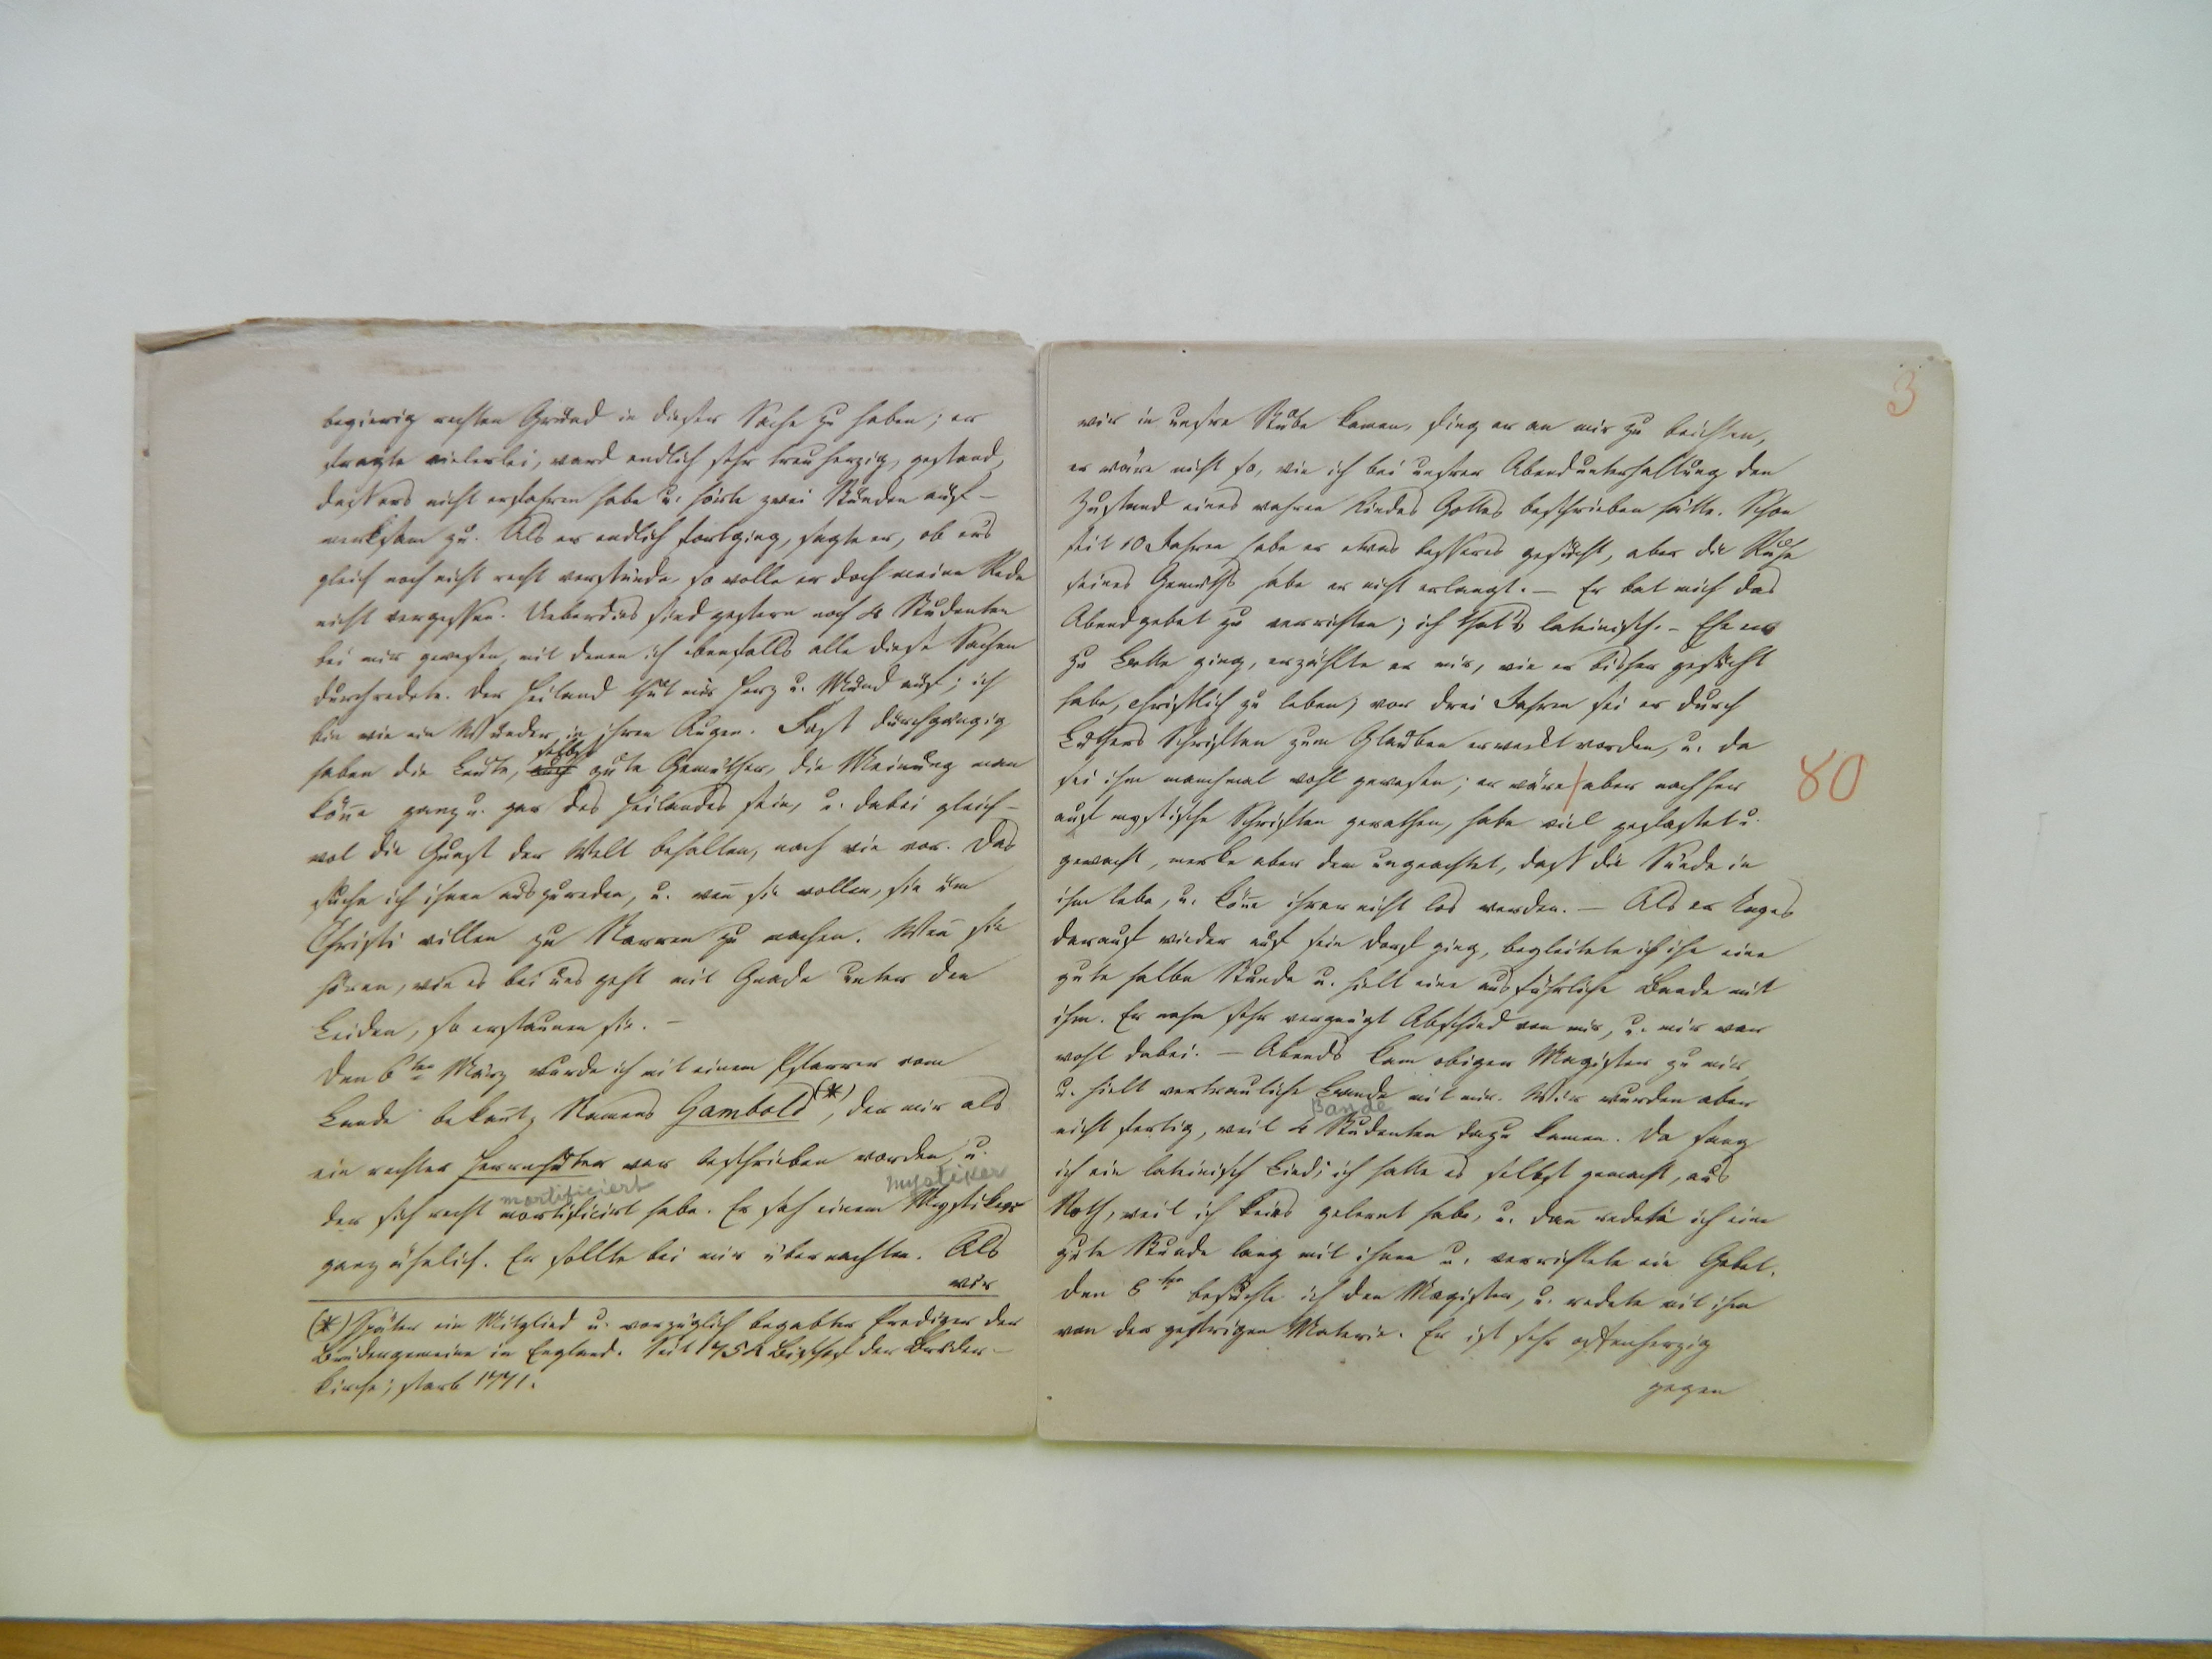 begierig rechten Grund in dieser Sache zu haben; er
fragte vielerlei, ward endlich sehr treuherzig, gestand,
dass ers nicht erfahren habe u. hörte zwei Stunden auf-
merksam zu. Als er endlich fortging, sagte er, ob ers
gleich noch nicht recht verstünde, so wolle er doch meine Rede
nicht vergessen. Ueberdies sind gestern noch 4 Studenten
bei mir gewesen, mit denen ich ebenfalls alle diese Sachen
durchredete. Der Heiland thut mir Herz u. Mund auf; ich
bin wie ein Wunder in ihren Augen. Fast durchgängig
haben die Leute, auch selbst gute Gemüther, die Meinung man
könne ganz u. gar des Heilandes sein, u. dabei gleich-
wol die Gunst der Welt behalten, nach wie vor. Das
suche ich ihnen auszureden, u. wenn sie wollen, sie um
Christi willen zu Narren zu machen. Wenn sie
hören, wie es bei uns geht mit Gnade unter den
Leiden, so erstaunen sie. –
Den 6ten März wurde ich mit einem Pfarrer vom
Lande bekannt, Namens Gambold (*), der mir als
ein rechter Herrnhuter war beschrieben worden, u.
mortificiert mystiker
der sich recht mortificirt habe. Er sah einem Mystiker
ganz ähnlich. Er sollte bei mir übernachten. Als
wir
(*) Später ein Mitglied u. vorzüglich begabter Prediger der
Brüdergemeine in England. Seit 1754 Bischof der Brüder-
kirche; starb 1771.
3
wir in unsre Stube kamen, fing er an mir zu beichten,
er wäre nicht so, wie ich bei unsrer Abendunterhaltung den
Zustand eines wahren Kindes Gottes beschrieben hätte. Schon
seit 10 Jahren habe er etwas besseres gesucht, aber die Ruhe
seines Gemüths habe er nicht erlangt. – Er bat mich das
Abendgebet zu verrichten; ich that's lateinisch. – Ehe er
zu Bette ging, erzählte er mir, wie er bisher gesucht
habe, christlich zu leben; vor drei Jahren sei er durch
Luthers Schriften zum Glauben erweckt worden, u. da
sei ihm manchmal wohl gewesen; er wäre / aber nachher
80
auf mystische Schriften gerathen, habe viel gefastet u.
gewacht, merke aber dem ungeachtet, dass die Sünde in
ihm lebe, u. könne ihrer nicht los werden. – Als er Tags
darauf wieder auf sein Dorf ging, begleitete ich ihn eine
gute halbe Stunde u. hielt eine ausführliche Bande mit
ihm. Er nahm sehr vergnügt Abschied von mir, u. mir war
wohl dabei. – Abends kam obiger Magister zu mir,
u. hielt vertrauliche Bande mit mir. Wir wurden aber
Bande
nicht fertig, weil 4 Studenten dazu kamen. Da sang
ich ein lateinisch Lied; ich hatte es selbst gemacht, aus
Noth, weil ich keins gelernt habe, u. dann redete ich eine
gute Stunde lang mit ihnen u. verrichtete ein Gebet.
Den 8ten besuchte ich den Magister, u. redete mit ihm
von der gestrigen Materie. Er ist sehr offenherzig
gegen